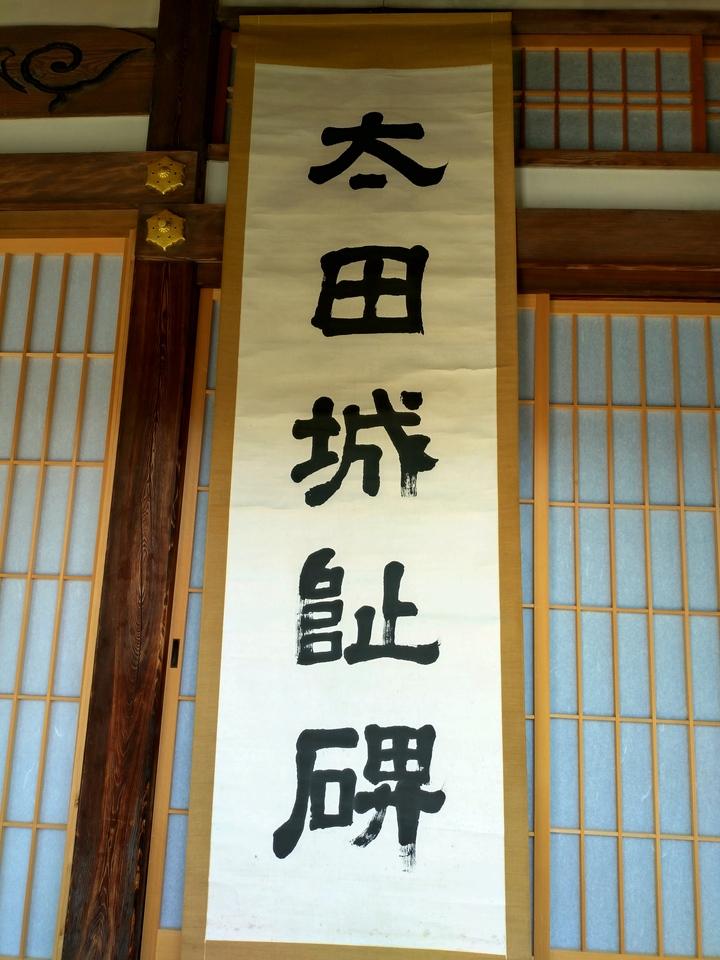 太田城阯碑